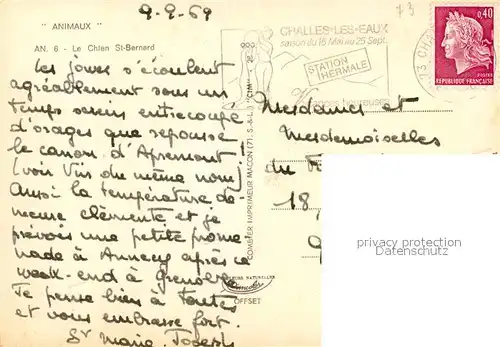 " ANIMAUX "
AN. 6 - Le Chien St-Bernard
9.9.69
73
CHALLES-LES-EAUX
saison du 15 Mai au 25 Sept.
STATION
THERMALE
0,40
POSTES
REPUBLIQUE FRANÇAISE
Les jours s'écoulent
agréablement sous un
temps serein entrecoupé
d'orages que repousse
le canon d'Apremont
(voir Vins du même nom)
Aussi la température de-
meure clémente et je
prévois une petite prome
nade à Annecy après ce
week-end à Grenoble.
Je pense bien à toutes
et vous embrasse fort.
Sr Marie Joseph
COMBIER IMPRIMEUR MACON (71. S.-&-L.) "CIM"
COULEURS NATURELLES
OFFSET
Mesdames et
Mesdemoiselles
du
18,
privacy protection
Datenschutz